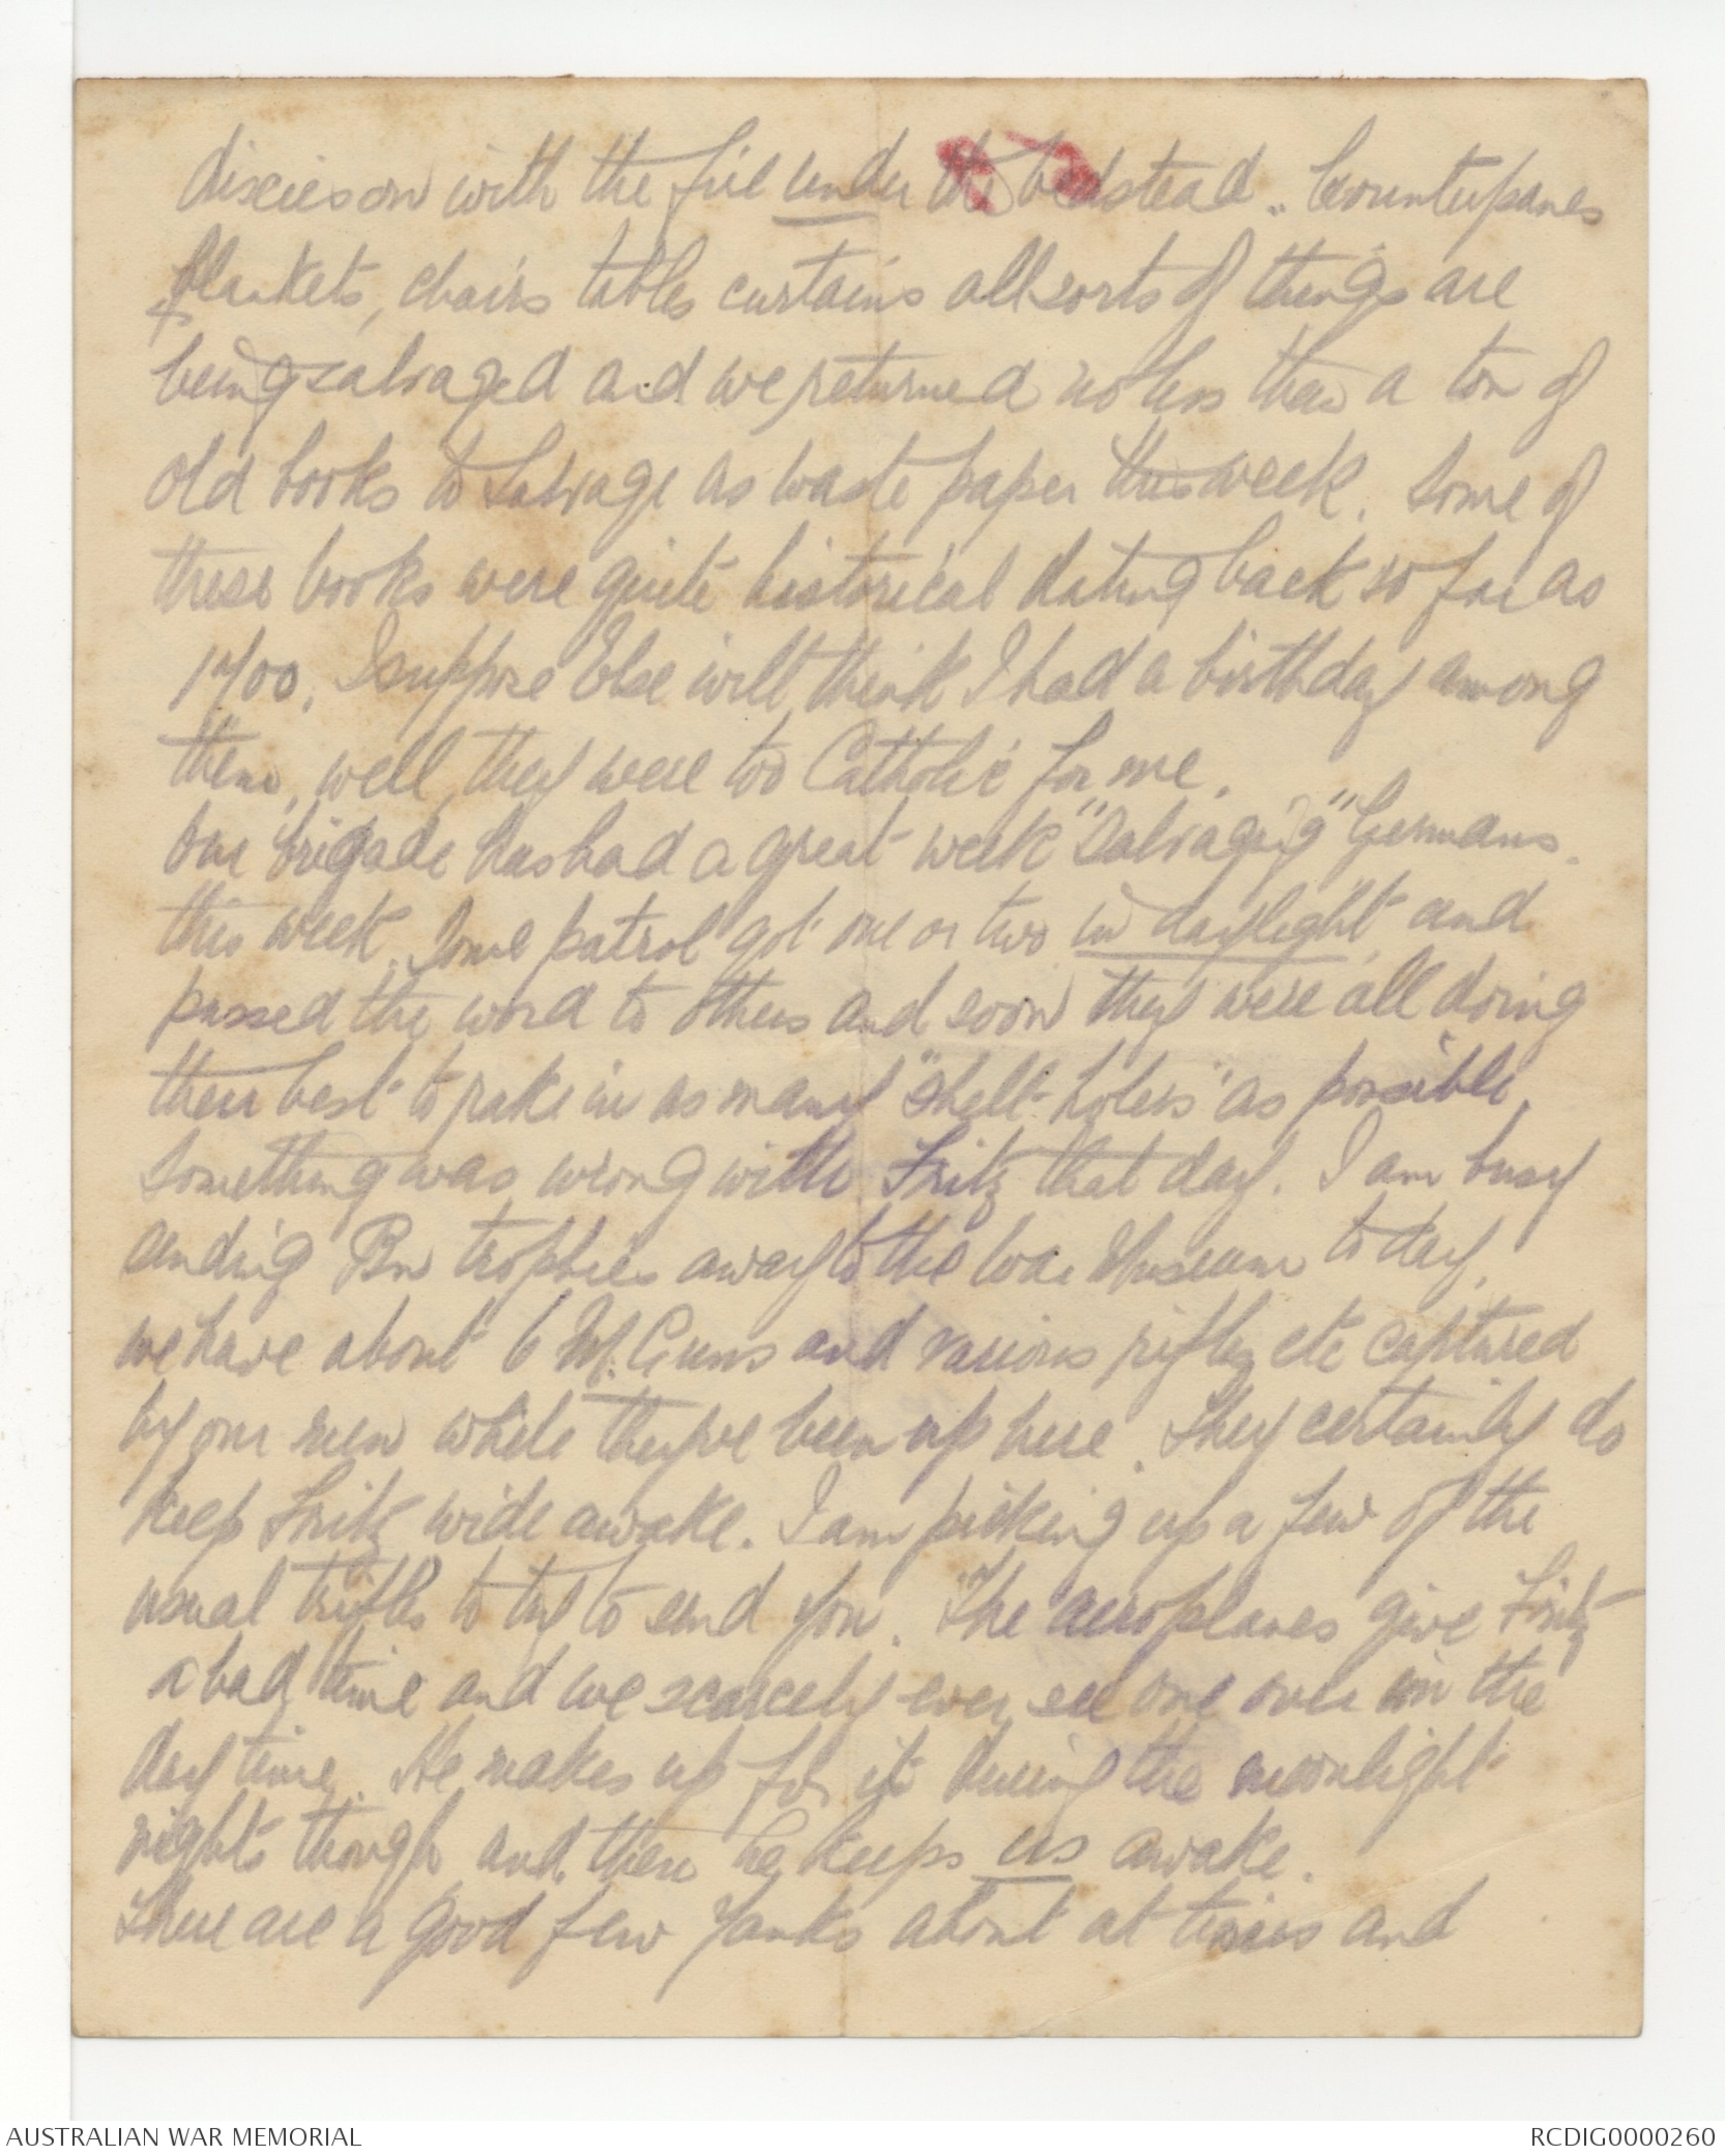 discusson with the fire under the bedstead. Counterpanes
& blankets, chairs tables curtains all sorts of things are
being salvaged and we returned no less than a ton of
old books to Salvage as waste paper this week. Some of
these books were quite historical dating back so far as
1700. I suppose Else will think I had a birthday among
them, well, they were too Catholic for me.
Our brigade has had a great week "Salvaging" Germans.
this week. Some patrol got one or two in daylight and
passed the word to others and soon they were all doing
their best to rake in as many "shell-holers" as possible.
Something was wrong with Fritz that day. I am busy
sending Bn trophies away to the War Museum today,
we have about 6 M. Guns and various rifles etc captured
by our men while they've been up here. They certainly do
keep Fritz wide awake. I am picking up a few of the
usual trifles to try to send you. The aeroplanes give Fritz
a bad time and we scarcely ever see one over in the
day time. He makes up for it during the moonlight
nights though and then he keeps us awake.
There are a good few Yanks about at times and
AUSTRALIAN WAR MEMORIAL
RCDIG0000260